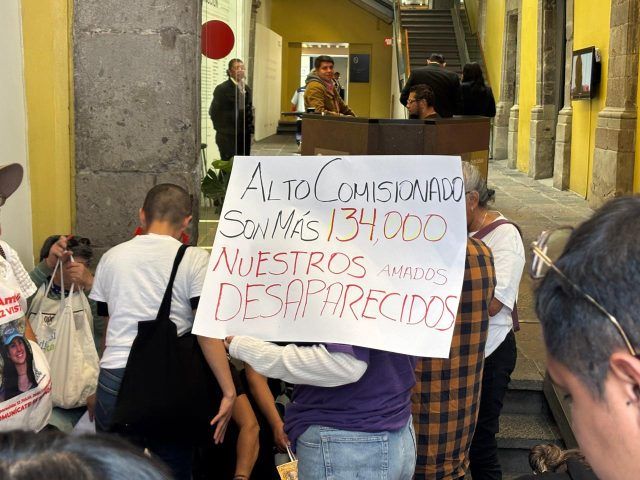 ALTO COMISIONADO
SON MÁS 134,000
NUESTROS AMADOS
DESAPARECIDOS